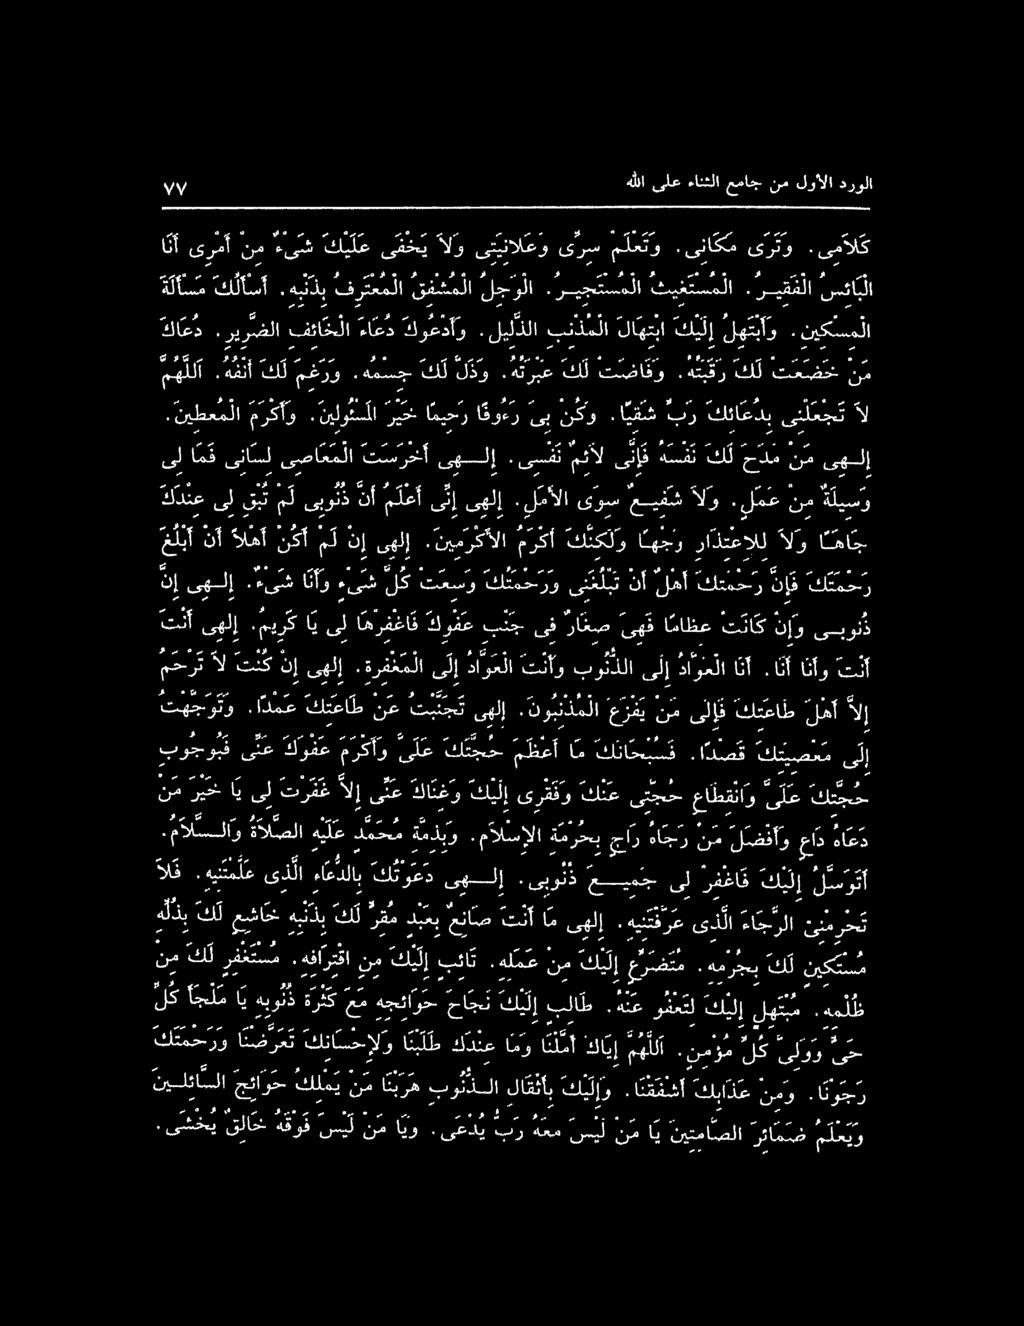 الورد الأول من جامع الثناء على الله ٧٧
كَلاَمِى. وَتَرَى مَكَانِى. وَتَعْلَمْ سِرِّى وَعَلاَنِيَتِى وَلاَ يَخْفَى عَلَيْكَ شَىْءٌ مِنْ أَمْرِى أَنَا
الْبَائِسُ الْفَقِيرُ. الْمُسْتَغِيثُ الْمُسْتَجِيرُ. الْوَجِلُ الْمُشْفِقُ الْمُعْتَرِفُ بِذَنْبِهِ. أَسْأَلُكَ مَسْأَلَةَ
الْمِسْكِينِ. وَأَبْتَهِلُ إِلَيْكَ ابْتِهَالَ الْمُذْنِبِ الذَّلِيلِ. وَأَدْعُوكَ دُعَاءَ الْخَائِفِ الضَّرِيرِ. دُعَاكَ
مَنْ خَضَعَتْ لَكَ رَقَبَتُهُ. وَفَاضَتْ لَكَ عَبْرَتُهُ. وَذَلَّ لَكَ جِسْمُهُ. وَرَغِمَ لَكَ أَنْفُهُ. اَللَّهُمَّ
لاَ تَجْعَلْنِى بِدُعَائِكَ رَبِّ شَقِيًّا. وَكُنْ بِىَ رَءُوفًا رَحِيمًا خَيْرَ الْمَسْئُولِينَ. وَأَكْرَمَ الْمُعْطِينَ.
إِلَهِى مَنْ مَدَحَ لَكَ نَفْسَهُ فَإِنِّى لاَئِمٌ نَفْسِى. إِلَهِى أَخْرَسَتِ الْمَعَاصِى لِسَانِى فَمَا لِى
وَسِيلَةٌ مِنْ عَمَلٍ. وَلاَ شَفِيعٌ سِوَى الأَمَلِ. إِلَهِى إِنِّى أَعْلَمُ أَنَّ ذُنُوبِى لَمْ تُبْقِ لِى عِنْدَكَ
جَاهًا وَلاَ لِلاِعْتِذَارِ وَجْهًا وَلَكِنَّكَ أَكْرَمُ الأَكْرَمِينَ. إِلَهِى إِنْ لَمْ أَكُنْ أَهْلاً أَنْ أَبْلُغَ
رَحْمَتَكَ فَإِنَّ رَحْمَتَكَ أَهْلٌ أَنْ تَبْلُغَنِى وَرَحْمَتُكَ وَسِعَتْ كُلَّ شَىْءٍ وَأَنَا شَىْءٌ. إِلَهِى إِنَّ
ذُنُوبِى وَإِنْ كَانَتْ عِظَامًا فَهِىَ صِغَارٌ فِى جَنْبِ عَفْوِكَ فَاغْفِرْهَا لِى يَا كَرِيمُ. إِلَهِى أَنْتَ
أَنْتَ وَأَنَا أَنَا. أَنَا الْعَوَّادُ إِلَى الذُّنُوبِ وَأَنْتَ الْعَوَّادُ إِلَى الْمَغْفِرَةِ. إِلَهِى إِنْ كُنْتَ لاَ تَرْحَمُ
إِلاَّ أَهْلَ طَاعَتِكَ فَإِلَى مَنْ يَفْزَعُ الْمُذْنِبُونَ. إِلَهِى تَجَنَّبْتُ عَنْ طَاعَتِكَ عَمْدًا. وَتَوَجَّهْتُ
إِلَى مَعْصِيَتِكَ قَصْدًا. فَسُبْحَانَكَ مَا أَعْظَمَ حُجَّتَكَ عَلَىَّ وَأَكْرَمَ عَفْوَكَ عَنِّى فَبِوُجُوبِ
حُجَّتِكَ عَلَىَّ وَانْقِطَاعِ حُجَّتِى عَنْكَ وَفَقْرِى إِلَيْكَ وَغِنَاكَ عَنِّى إِلاَّ غَفَرْتَ لِى يَا خَيْرَ مَنْ
دَعَاهُ دَاعٍ وَأَفْضَلَ مَنْ رَجَاهُ رَاجٍ بِحُرْمَةِ الإِسْلاَمِ. وَبِذِمَّةِ مُحَمَّدٍ عَلَيْهِ الصَّلاَةُ وَالسَّلاَمُ.
أَتَوَسَّلُ إِلَيْكَ فَاغْفِرْ لِى جَمِيعَ ذُنُوبِى. إِلَهِى دَعَوْتُكَ بِالدُّعَاءِ الَّذِى عَلَّمْتَنِيهِ. فَلاَ
تَحْرِمْنِىَ الرَّجَاءَ الَّذِى عَرَّفْتَنِيهِ. إِلَهِى مَا أَنْتَ صَانِعٌ بِعَبْدٍ مُقِرٍّ لَكَ بِذَنْبِهِ خَاشِعٍ لَكَ بِذُلِّهِ
مُسْتَكِينٍ لَكَ بِجُرْمِهِ. مُتَضَرِّعٍ إِلَيْكَ مِنْ عَمَلِهِ. تَائِبٍ إِلَيْكَ مِنِ اقْتِرَافِهِ. مُسْتَغْفِرٍ لَكَ مِنْ
ظُلْمِهِ. مُبْتَهِلٍ إِلَيْكَ لِتَعْفُوَ عَنْهُ. طَالِبٍ إِلَيْكَ نَجَاحَ حَوَائِجِهِ مَعَ كَثْرَةِ ذُنُوبِهِ يَا مَلْجَأَ كُلِّ
حَىٍّ وَوَلِىَّ كُلِّ مُؤْمِنٍ. اَللَّهُمَّ إِيَّاكَ أَمَّلْنَا وَمَا عِنْدَكَ طَلَبْنَا وَلإِحْسَانِكَ تَعَرَّضْنَا وَرَحْمَتَكَ
رَجَوْنَا. وَمِنْ عَذَابِكَ أَشْفَقْنَا. وَإِلَيْكَ بِأَثْقَالِ الذُّنُوبِ هَرَبْنَا مَنْ يَمْلِكُ حَوَائِجَ السَّائِلِينَ
وَيَعْلَمُ ضَمَائِرَ الصَّامِتِينَ يَا مَنْ لَيْسَ مَعَهُ رَبٌّ يُدْعَى. وَيَا مَنْ لَيْسَ فَوْقَهُ خَالِقٌ يُخْشَى.